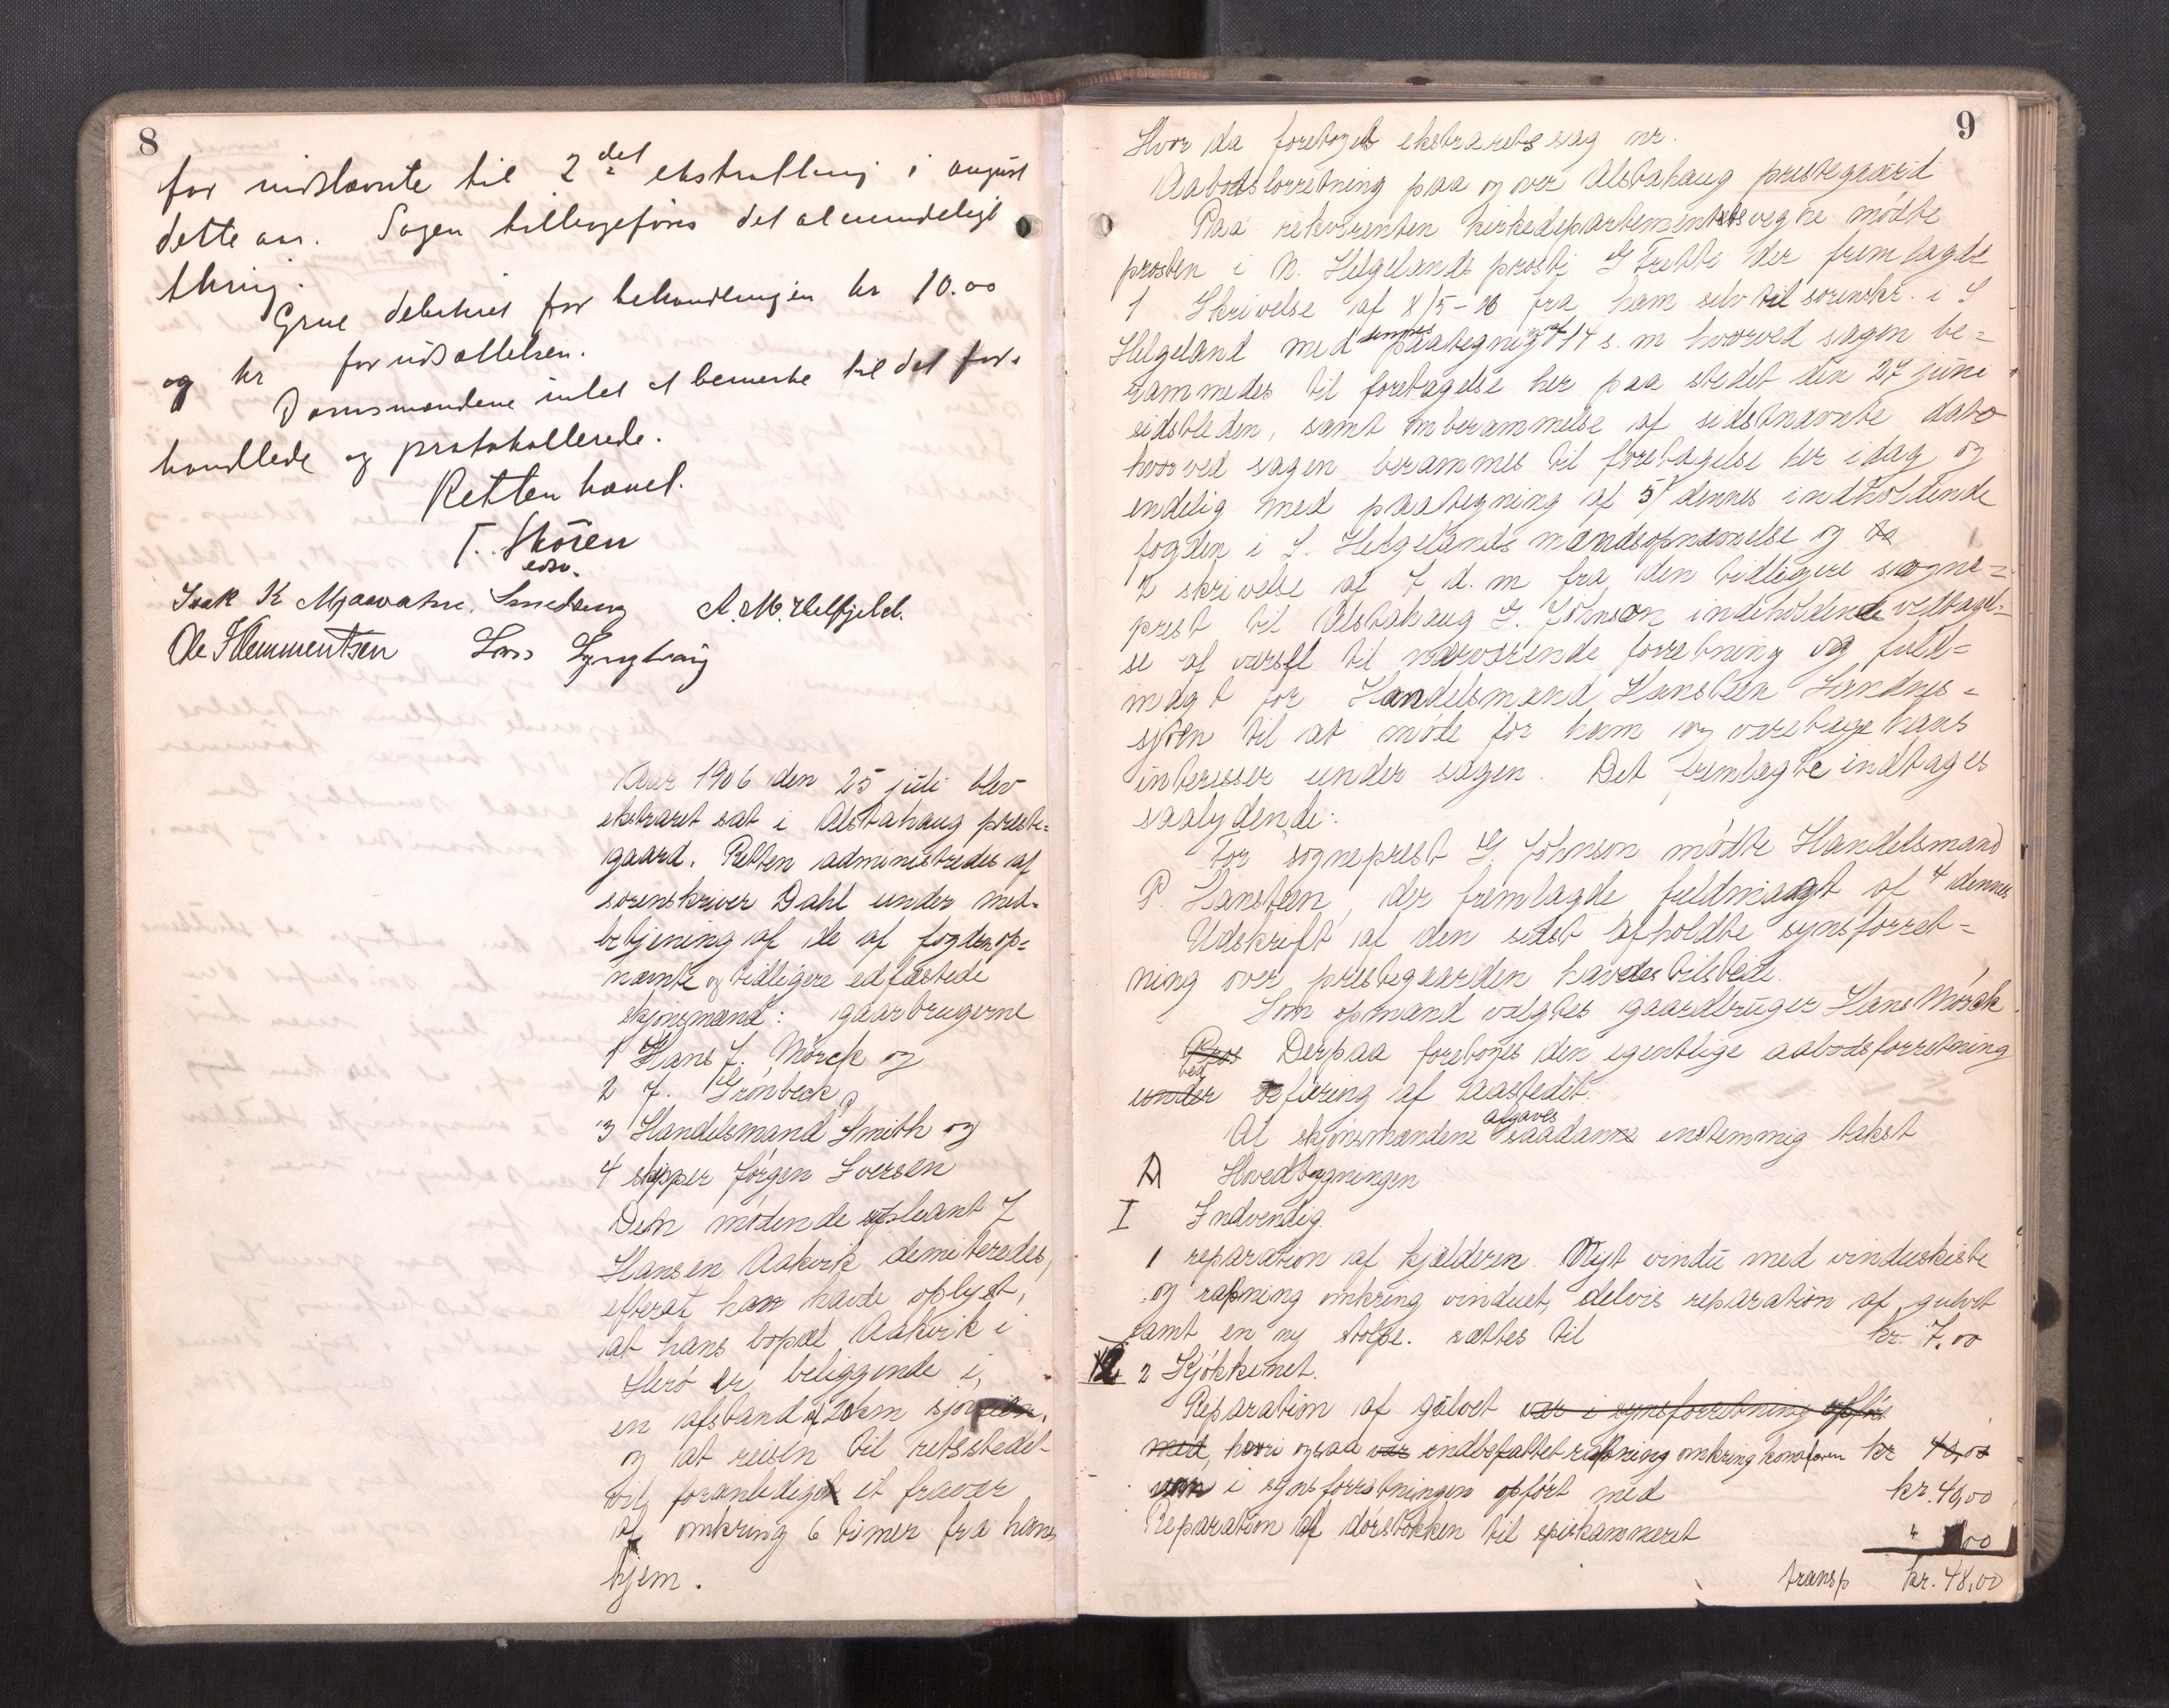 8
for nidslævnte til 2det ekstratting i august
dette aar. Sagen tillyses det almindelige
thing.
Grue debiteres for behandlingen kr 10.00
og kr for udsættelsen.
Domsmændene intet at bemerke til det for-
handlede og protokollerede.
Retten hævet.
T. Skören
edsv.
Isak K Mjaavatn. Smedseng A. M. Helfjeld.
Ole Klemmentsen Lars Lyngtveig
Aar 1906 den 25 juli blev
ekstraret sat i Alstahaug preste-
gaard. Retten administredes af
sorenskriver Dahl under med-
betjening af de af fogden op-
nævnte og tidligere edfæstede
skjønsmænd: gaarbrugerne
1 Hans J. Mörck og
2 J. Grönbeck
3 Handelsmand P Smith og
4 skipper Jörgen Iversen
Den mödende supleant Z
Hansen Aakvik demiteredes,
efterat han havde oplyst,
at hans bopæl Aakvik i
Herö er beliggende i
en afstand af 20km sjøveien.
og at reisen til retsstedet
vil foranledige et fravær
af omkring 6 timer fra hans
hjem.
9
Hvor da foretoges ekstraretssag nr.
Aabodsforretning paa og over Alstahaug prestegaard
Paa rekvirenten kirkedepartementets vegne mödte
prosten i N. Helgelands prosti G Fretti der fremlagde
1 Skrivelse af 8/5-06 fra ham selv til sorenskr. i S
Helgeland med dennes paategning af 14 s. m hvorved sagen be-
rammedes til foretagelse her paa stedet den 27 juni
sidstleden, samt omberammelse af sidstnævnte dato
hvorved sagen berammes til foretagelse her idag og
endelig med paategning af 5 dennes indholdende
fogden i S. Helgelands mandsopnævnelse og
2 skrivelse af 7 d. m fra den tidligere sogne-
prest til Alstahaug G. Johnson indeholdende vedtagel-
se af varsel til nærværende forretning og fuld-
magt for Handelsmand Hansteen Sandnes-
sjöen til at möde for ham og varetage hans
interesser under sagen. Det fremlagte indtages
saalydende:
For sogneprest G. Johnson mödte Handelsmand
P. Hansteen, der fremlagde fuldmagt af 4 dennes
Udskrift af den sidst afholdte synsforret-
ning over prestegaarden havdes tilstede.
Som opmand valgtes gaardbruger Hans Mörck.
Pros Derpaa foretoges den egentlige aabodsforretning
under ved befaring af aastedet.
Af skjönsmændene afgaves saadan enstemmig takst
A Hovedbygningen
I Indvendig.
1 reparation af kjælderen. Nyt vindu med vinduskiste
og rapning omkring vinduet, delvis reparation af gulvet
samt en ny stolpe. sættes til kr. 7.00
2 2 Kjökkenet.
Reparation af gulvet var i synsforretning opför
med, hvori ogsaa var indbefattet rapning omkring komfuren kr 40,00
som i synsforretningen opfört med kr. 40,00
Reparation af dörstokken til spiskammeret " 00
transp kr. 48,00